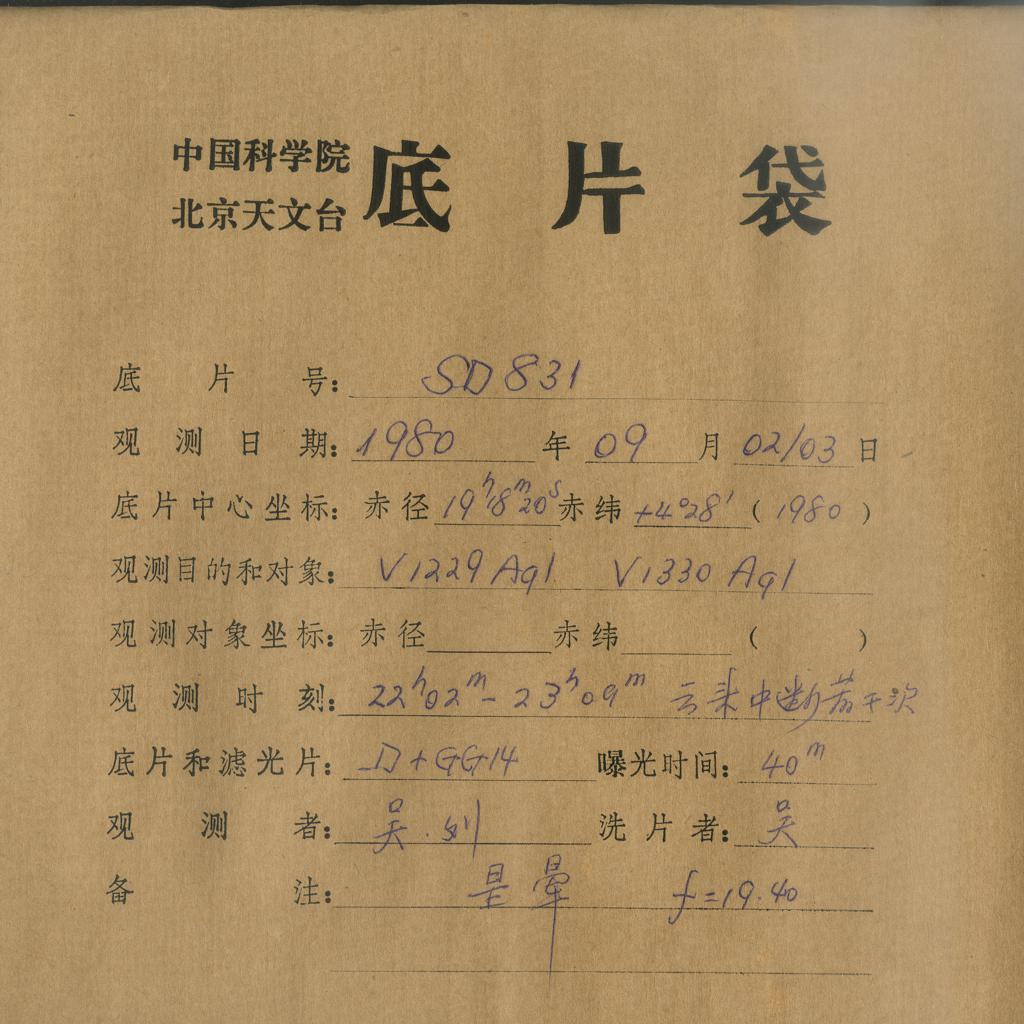 中国科学院
北京天文台
底片袋
底片号: SD831
观测日期: 1980年09月02/03日
底片中心坐标: 赤径19h18m20s赤纬+4°28′(1980)
观测目的和对象: V1229 Aql V1330 Aql
观测对象坐标: 赤径 赤纬 ( )
观测时刻: 22h02m-23h09m 云来中断若干次
底片和滤光片: D+GG14 曝光时间: 40m
观测者: 吴.刘 洗片者: 吴
备注: 是晕 f=19.40